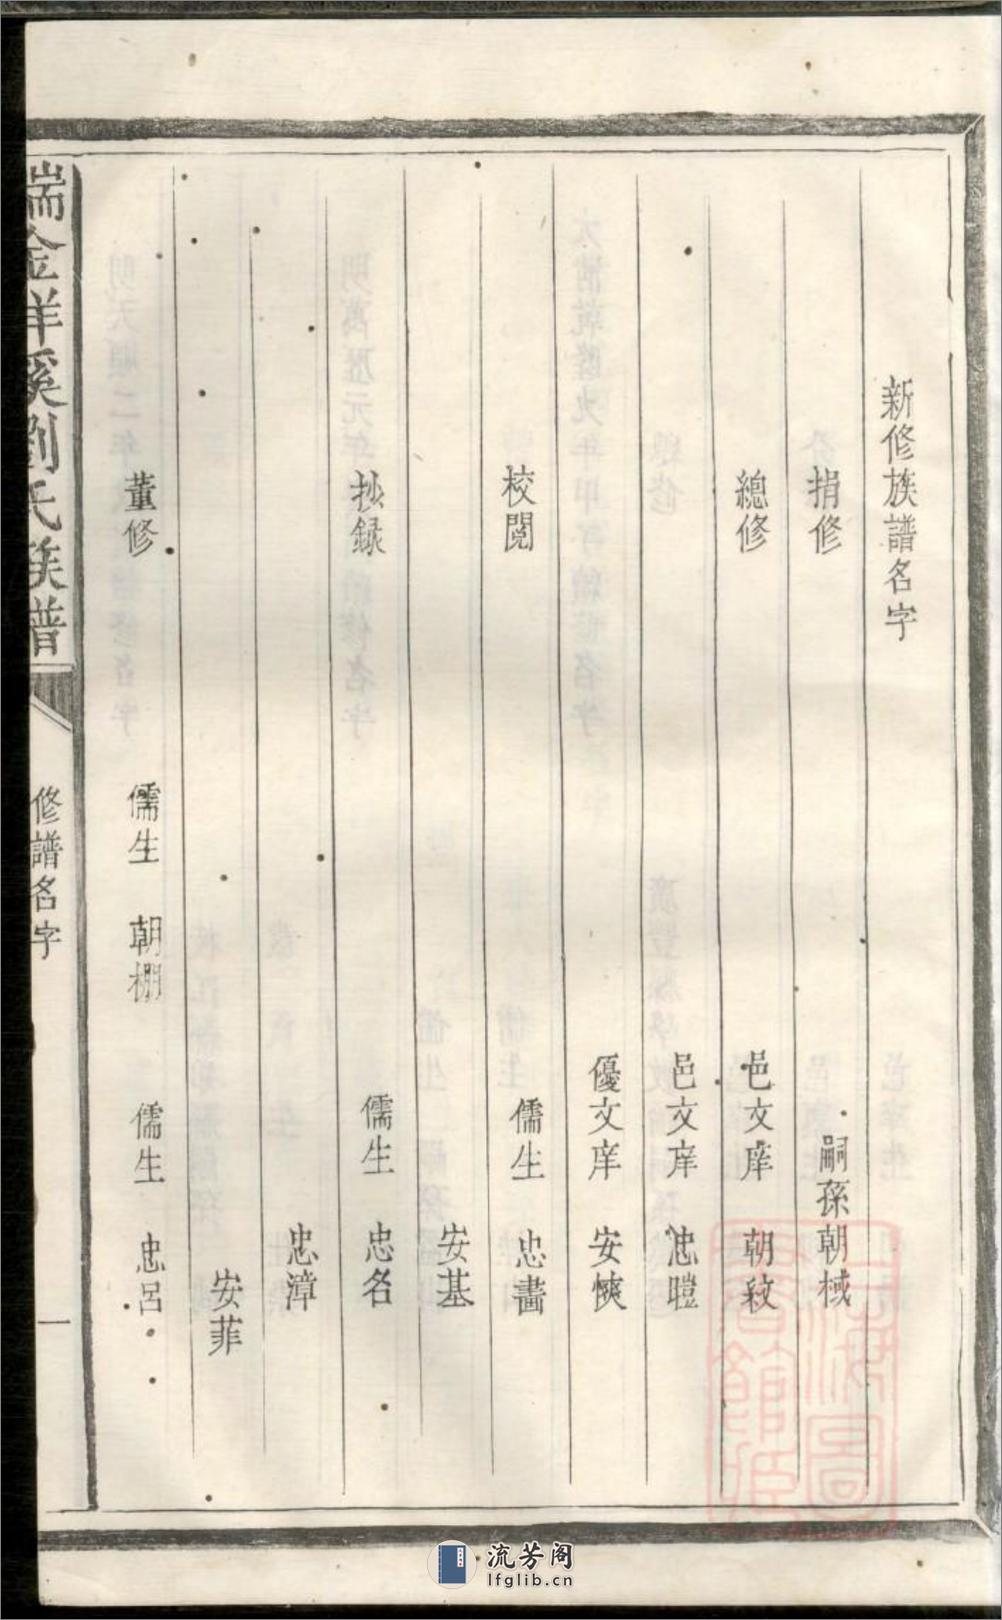 新修族譜名字
捐修 嗣孫朝棫
總修 邑文庠 朝紋
邑文庠 忠暟
優文庠 安慡
校閱 儒生 忠畵
安基
抄録 儒生 忠名
忠漳
安菲
董修 儒生 朝棚 儒生 忠呂
瑞金洋溪劉氏族譜 修譜名字 一
上海圖書館藏
流芳阁
lfglib.cn